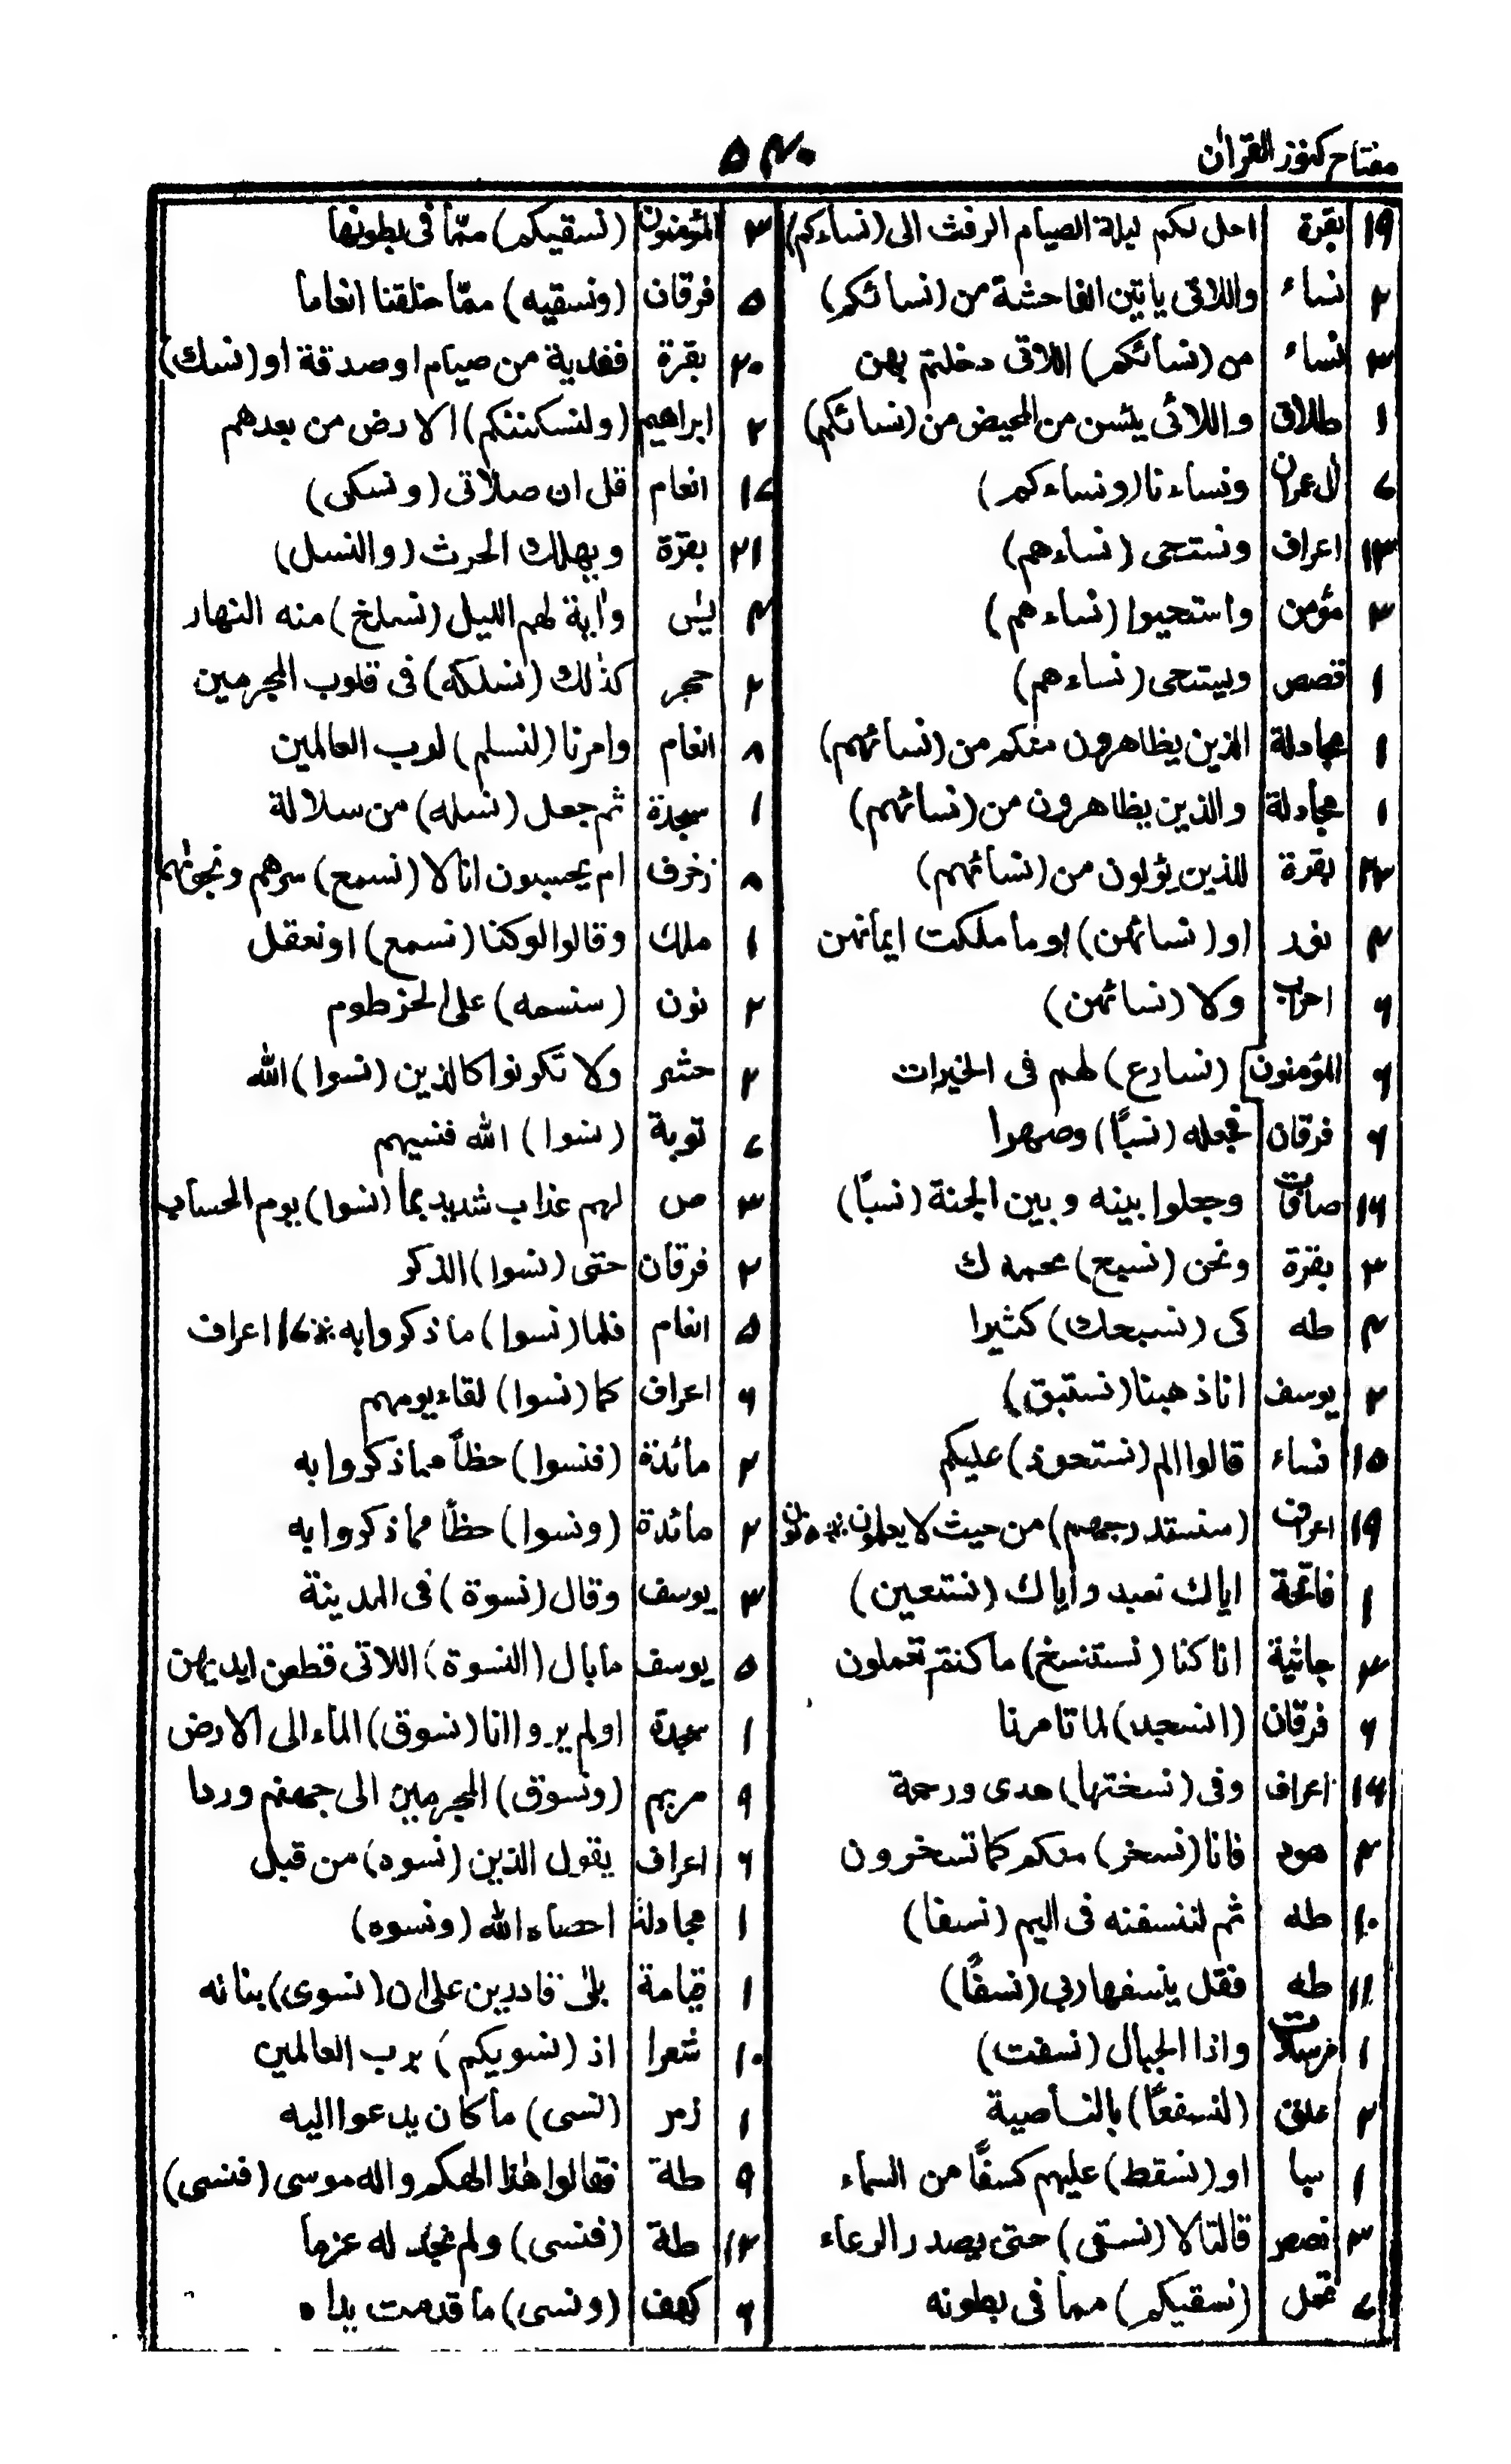 مفتاح كنوز القرآن
۵۴۰
۱۹ بقرة احل لكم ليلة الصيام الرفث الى (نساءكم)
۲ نساء واللاتى ياتين الفاحشة من (نسائكم)
۳ نساء من (نسائكم) اللاتى دخلتم بهن
۱ طلاق واللائى يئسن من المحيض من (نسائكم)
۷ ال عمران ونساءنا (ونساءكم)
۱۳ اعراف ونستحى (نساءهم)
۳ مؤمن واستحيوا (نساءهم)
۱ قصص ويستحى (نساءهم)
۱ مجادلة الذين يظاهرون منكم من (نسائهم)
۱ مجادلة والذين يظاهرون من (نسائهم)
۲۳ بقرة للذين يؤلون من (نسائهم)
۴ نور او (نسائهن) او ما ملكت ايمانهن
۶ احزاب ولا (نسائهن)
۶ المؤمنون (نسارع) لهم فى الخيرات
۶ فرقان فجعله (نسبًا) وصهرا
۱۶ صافات وجعلوا بينه وبين الجنة (نسبًا)
۳ بقرة ونحن (نسبح) بحمدك
۴ طه كى (نسبحك) كثيرا
۲ يوسف انا ذهبنا (نستبق)
۱۵ نساء قالوا الم (نستحوذ) عليكم
۱۹ اعراف (سنستدرجهم) من حيث لا يعلمون * ۵ نون
۱ فاتحة اياك نعبد واياك (نستعين)
۳ جاثية انا كنا (نستنسخ) ما كنتم تعملون
۶ فرقان (انسجد) لما تامرنا
۱۴ اعراف وفى (نسختها) هدى ورحمة
۴ هود فانا (نسخر) منكم كما تسخرون
۱۰ طه ثم لننسفنه فى اليم (نسفا)
۱۱ طه فقل ينسفها ربى (نسفًا)
۱ مرسلات واذا الجبال (نسفت)
۲ علق (لنسفعًا) بالناصية
۱ سبا او (نسقط) عليهم كسفًا من السماء
۳ قصص قالتا لا (نسقى) حتى يصدر الرعاء
۷ نحل (نسقيكم) مما فى بطونه
۳ المؤمنون (نسقيكم) ممّا فى بطونها
۵ فرقان (ونسقيه) ممّا خلقنا انعاما
۲۰ بقرة ففدية من صيام او صدقة او (نسك)
۲ ابراهيم (ولنسكننكم) الارض من بعدهم
۱۷ انعام قل ان صلاتى (ونسكى)
۲۱ بقرة ويهلك الحرث (والنسل)
۴ يٰس واٰية لهم الليل (نسلخ) منه النهار
۲ حجر كذٰلك (نسلكه) فى قلوب المجرمين
۸ انعام وامرنا (لنسلم) لرب العالمين
۱ سجدة ثم جعل (نسله) من سلالة
۸ زخرف ام يحسبون انا لا (نسمع) سرهم ونجوٰىهم
۱ ملك وقالوا لو كنا (نسمع) او نعقل
۲ نون (سنسمه) على الخرطوم
۲ حشر ولا تكونوا كالذين (نسوا) الله
۷ توبة (نسوا) الله فنسيهم
۳ ص لهم عذاب شديد بما (نسوا) يوم الحساب
۲ فرقان حتى (نسوا) الذكر
۵ انعام فلما (نسوا) ما ذكروا به * ۱۷ اعراف
۶ اعراف كما (نسوا) لقاء يومهم
۲ مائدة (فنسوا) حظاً مما ذكروا به
۲ مائدة (ونسوا) حظاً مما ذكروا به
۳ يوسف وقال (نسوة) فى المدينة
۵ يوسف ما بال (النسوة) اللاتى قطعن ايديهن
۱ سجدة اولم يروا انا (نسوق) الماء الى الارض
۹ مريم (ونسوق) المجرمين الى جهنم وردا
۶ اعراف يقول الذين (نسوه) من قبل
۱ مجادلة احصاه الله (ونسوه)
۱ قيامة بلٰى قادرين على ان (نسوى) بنانه
۱۰ شعرا اذ (نسويكم) برب العالمين
۱ زمر (نسى) ما كان يدعوا اليه
۹ طهٰ فقالوا هٰذا الهكم واله موسى (فنسى)
۱۲ طهٰ (فنسى) ولم نجد له عزما
۶ كهف (ونسى) ما قدمت يداه